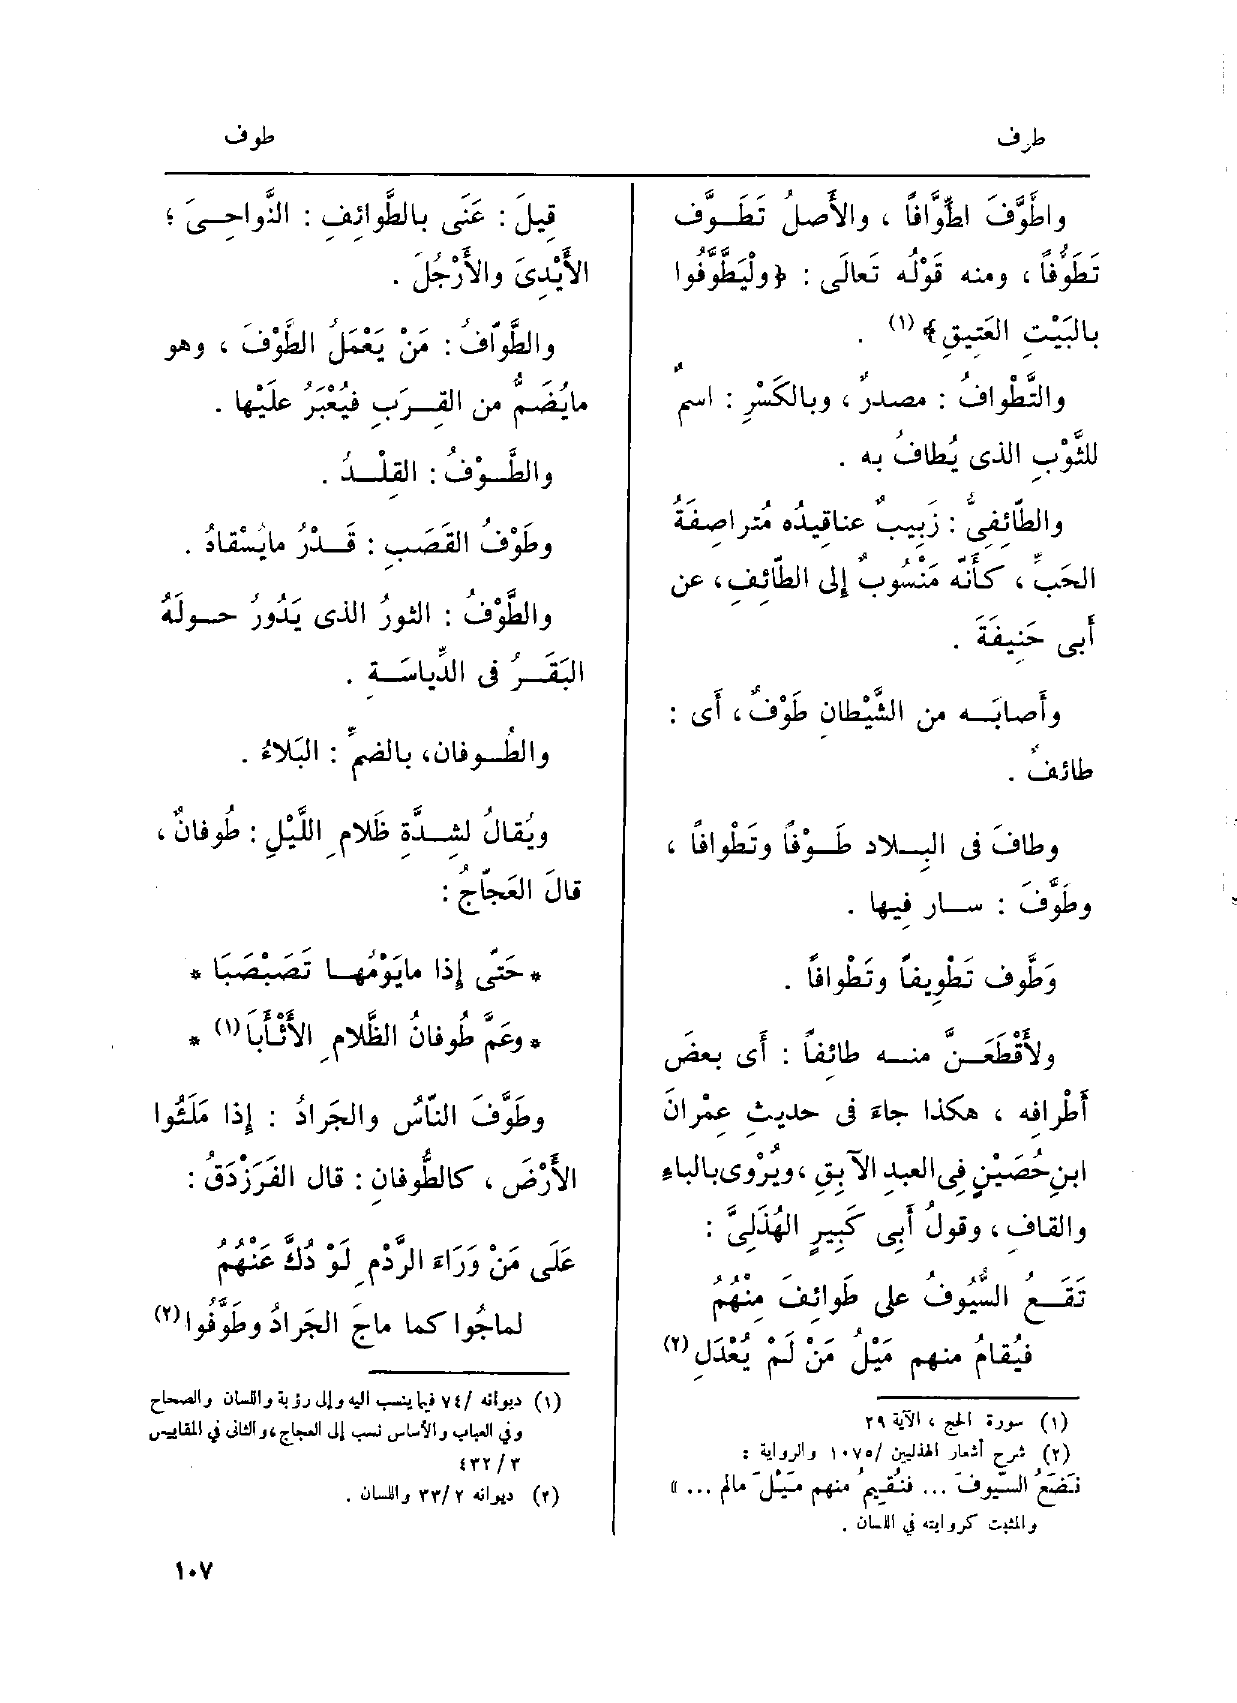 طرف
طوف
واطَّوَّفَ اطِّوَّافاً ، والأَصلُ تَطَـوَّف
تَطَوُّفاً ، ومنه قَوْلُه تَعالَى : ﴿ولْيَطَّوَّفُوا
بالبَيْتِ العَتِيقِ﴾ (١) .
والتَّطْوافُ : مصدرٌ ، وبالكَسْرِ : اسمٌ
للثَّوْبِ الذى يُطافُ به .
والطّائِفِىُّ : زَبِيبٌ عناقِيدُه مُتراصِفَةُ
الحَبِّ ، كأَنّه مَنْسُوبٌ إلى الطّائِفِ، عن
أَبى حَنِيفَةَ .
وأَصابَـه من الشَّيْطانِ طَوْفٌ ، أَى :
طائفٌ .
وطافَ فى البِـلاد طَـوْفًا وتَطْوافاً ،
وطَوَّفَ : سـار فِيها .
وَطَّوف تَطْوِيفاً وتَطْوافاً .
ولأَقْطَعَـنَّ منـه طائفاً : أَى بعضَ
أَطْرافِه ، هكذا جاءَ فى حديثِ عِمْرانَ
ابنِ حُصَيْنٍ فِى العبدِ الآبِقِ ، ويُرْوى بالباءِ
والقافِ ، وقولُ أَبِى كَبِيرٍ الهُذَلِىَّ :
تَقَـعُ السُّيُوفُ على طَوائِفَ مِنْهُمُ
فيُقامُ منهم مَيْلُ مَنْ لَمْ يُعْدَلِ (٢)
(١) سورة الحج ، الآية ٢٩
(٢) شرح أشعار الهذليين /١٠٧٥ والرواية :
نَضَعُ السّيوفَ ... فنُقِيمُ منهم مَيْلَ مالم ... »
والمثبت كروايته في اللسان .
قِيلَ : عَنَى بالطَّوائِفِ : النَّواحِـىَ ؛
الأَيْدِىَ والأَرْجُلَ .
والطَّوّافُ : مَنْ يَعْمَلُ الطَّوْفَ ، وهو
مايُضَمُّ من القِـرَبِ فيُعْبَرُ علَيْها .
والطَّـوْفُ : القِلْـدُ .
وطَوْفُ القَصَبِ : قَـدْرُ مايُسْقاهُ .
والطَّوْفُ : الثورُ الذى يَدُورُ حـولَهُ
البَقَـرُ فى الدِّياسَـةِ .
والطُـوفان، بالضمِّ : البَلاءُ .
ويُقالُ لشِـدَّةِ ظَلامِ اللَّيْلِ : طُوفانٌ ،
قالَ العَجّاجُ :
* حَتّى إذا مايَوْمُهـا تَصَبْصَبَا *
* وعَمَّ طُوفانُ الظَّلامِ الأَثْأَبَا (١) *
وطَوَّفَ النّاسُ والجَرادُ : إذا مَلَئُوا
الأَرْضَ ، كالطُّوفانِ : قال الفَرَزْدَقُ :
عَلَى مَنْ وَرَاءَ الرَّدْمِ لَوْ دُكَّ عَنْهُمُ
لماجُوا كما ماجَ الجَرادُ وطَوَّفُوا (٢)
(١) ديوانه /٧٤ فيما ينسب اليه وإلى رؤبة واللسان والصحاح
وفي العباب والأساس نسب إلى العجاج، والثانى في المقاييس
٤٣٢/٣
(٢) ديوانه ٣٣/٢ واللسان .
١٠٧